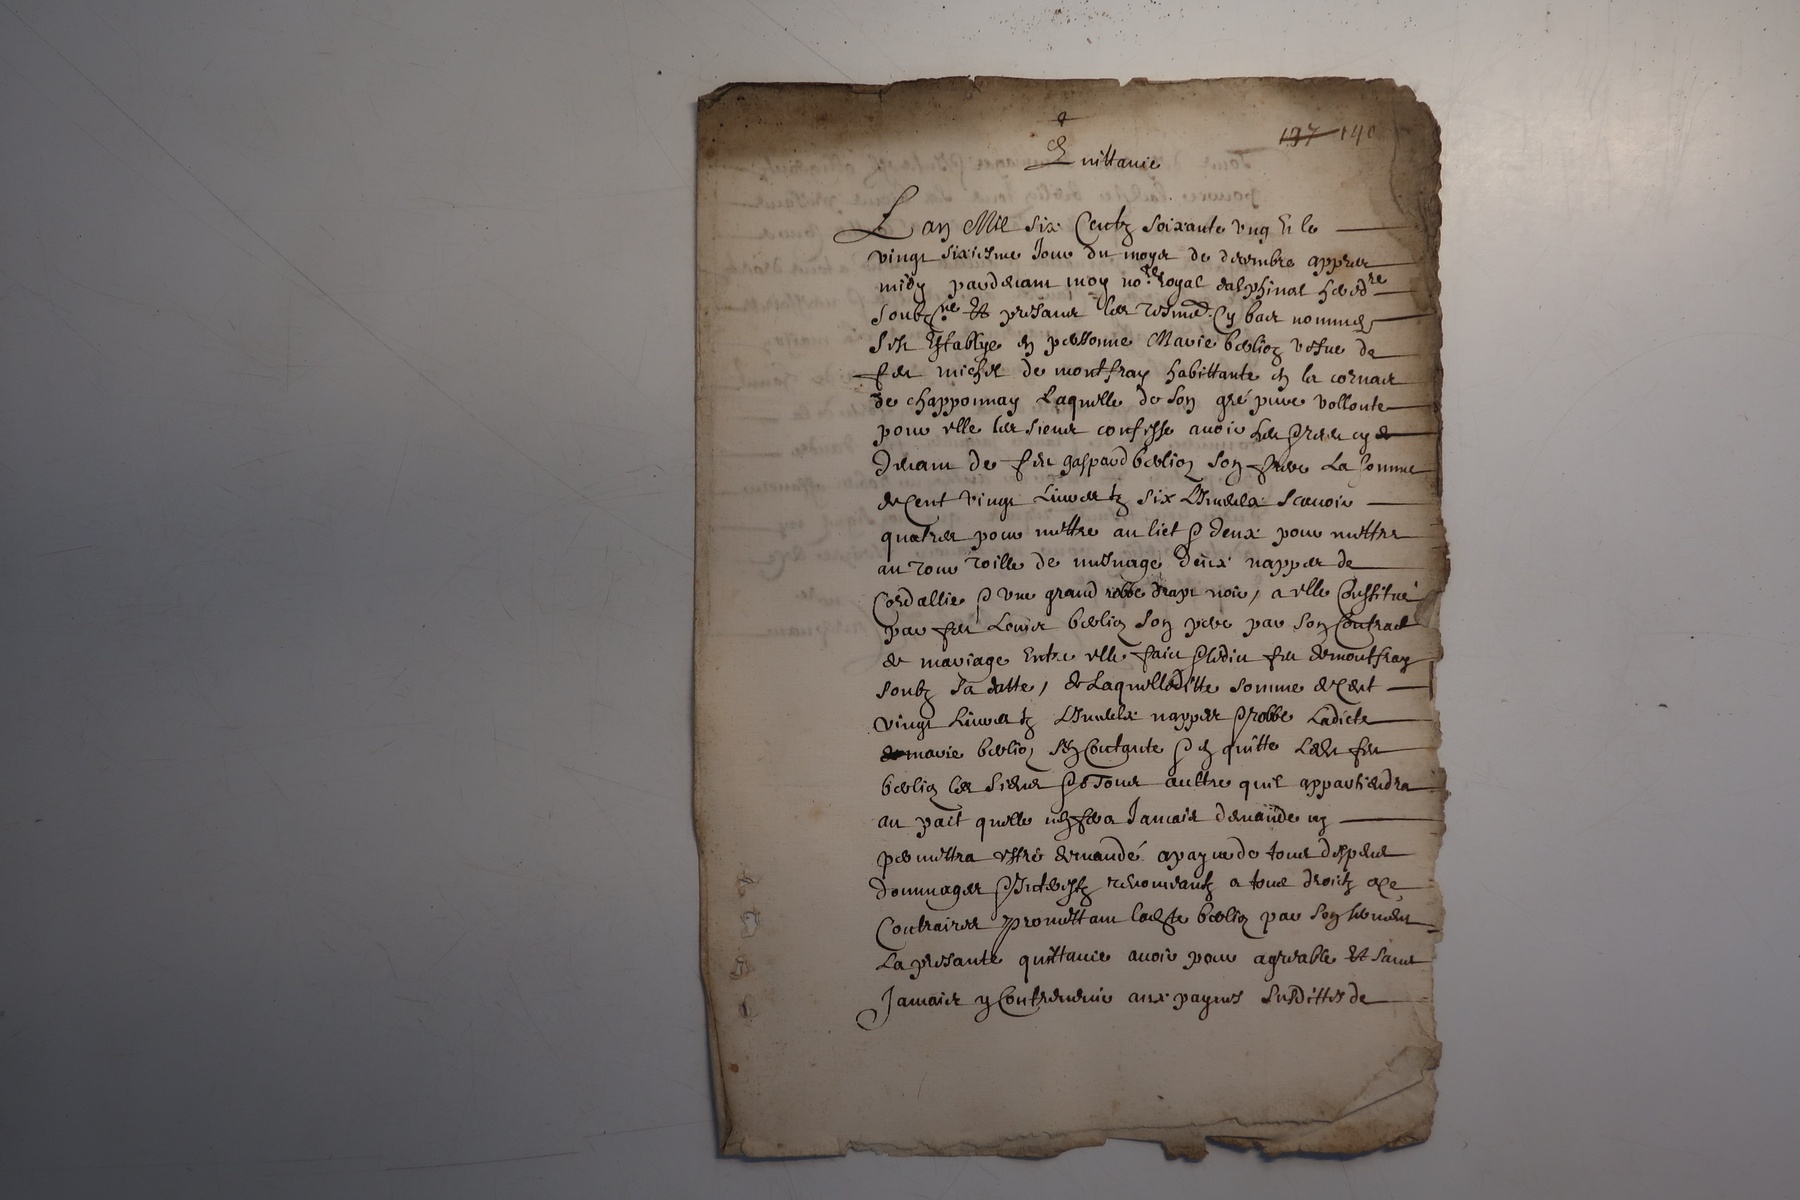 137 140
Quittance
L an Mil six Centz soixante ung & le
vingt sixiesme Jour du moys de decembre appres
midy pardevant moy no.re Royal dalphinal hered.re
soubz.ne et presantz les tesmo. Cy bas nommes
s'est Establye en personne Marie berlioz vefue de
feu michel de montfray habittante en la
de chapponnay Laquelle de son gré pure vollonte
pour elle les siens confesse avoir heu & receu cy
devant de feu gaspard berlioz son frere La somme
de Cent vingt Livres tz six Linceulx scavoir
quatres pour mettre au lict & deux pour mettre
au tour toille de mesnage deux nappes de
Cordallie & une grand robbe drapt noir, a elle Constitué
par feu Louis berlioz son pere par son Contract
de mariage Entre elle faict & ledict feu de montfray
soubz sa datte, de Laquelleditte somme de Cent
vingt Livres tz Linceulx nappes & robbe Ladicte
marie berlioz s'en Contante & en quitte Ledit feu
berlioz les siens & tous aultre quil appartiendra
au pait quelle n'en fera Jamais demande ny
permettra estre demandé a payne de tous despens
dommages & Interestz renonceantz a tous droictz a ce
Contraires promettant ladite berlioz par son serment
La presante quittance avoir pour agreable et sans
Jamais y Contrevenir aux paynes susdittes de